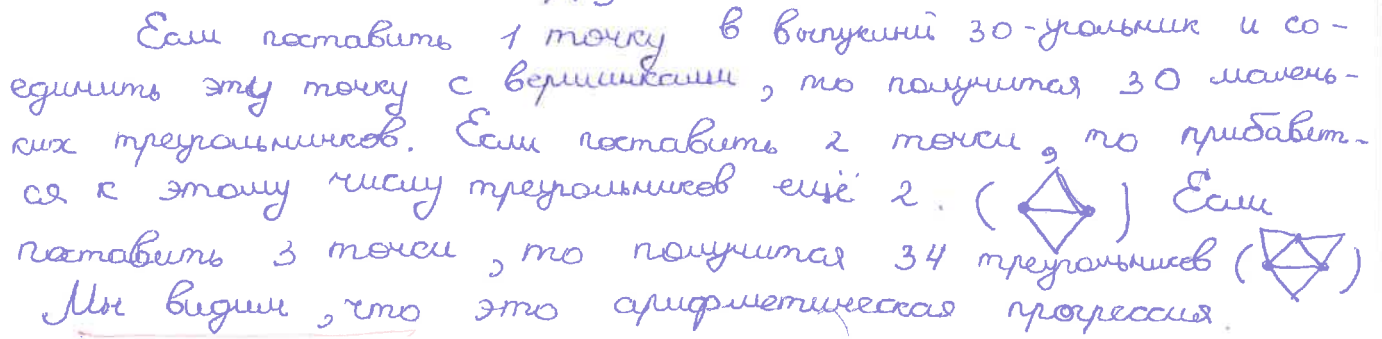 Если поставить 1 точку в выпуклый 30-угольник и со-
единить эту точку с вершинками, то получится 30 малень-
ких треугольничков. Если поставить 2 точки, то прибавит-
ся к этому числу треугольников ещё 2. ( ) Если
поставить 3 точки, то получится 34 треугольников ( )
Мы видим, что это арифметическая прогрессия.